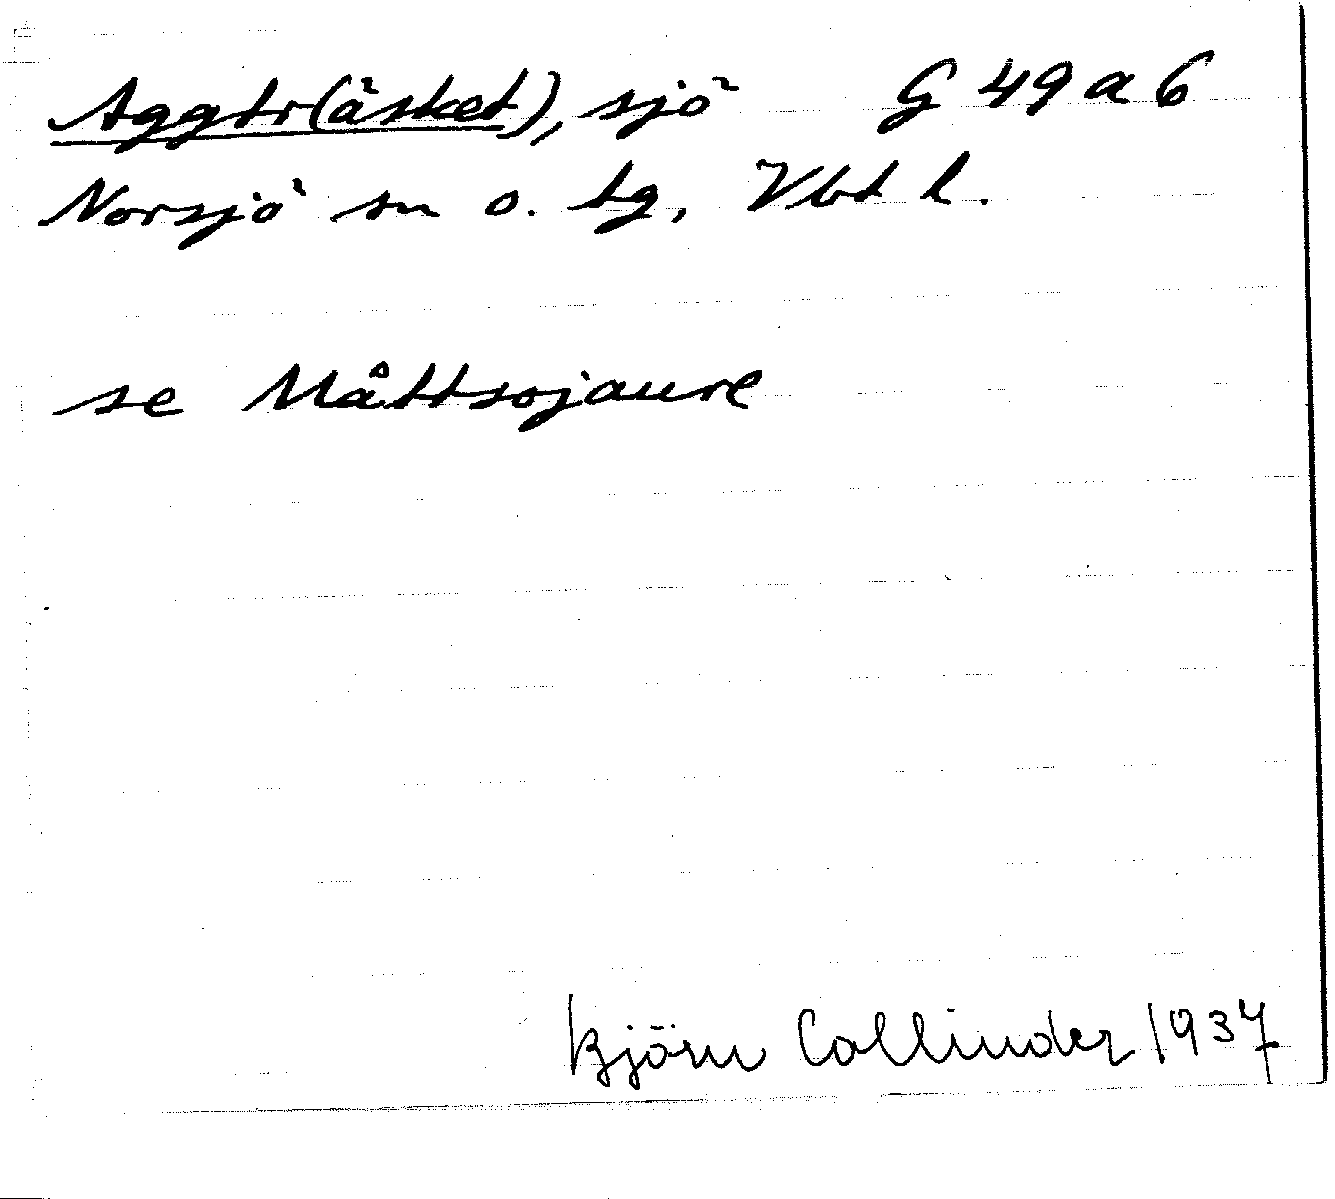 Aggtr(äsket), sjö G 49 a 6
Norsjö sn o. tg, Vbt l.
se Måttsojaure
Björn Collinder 1937